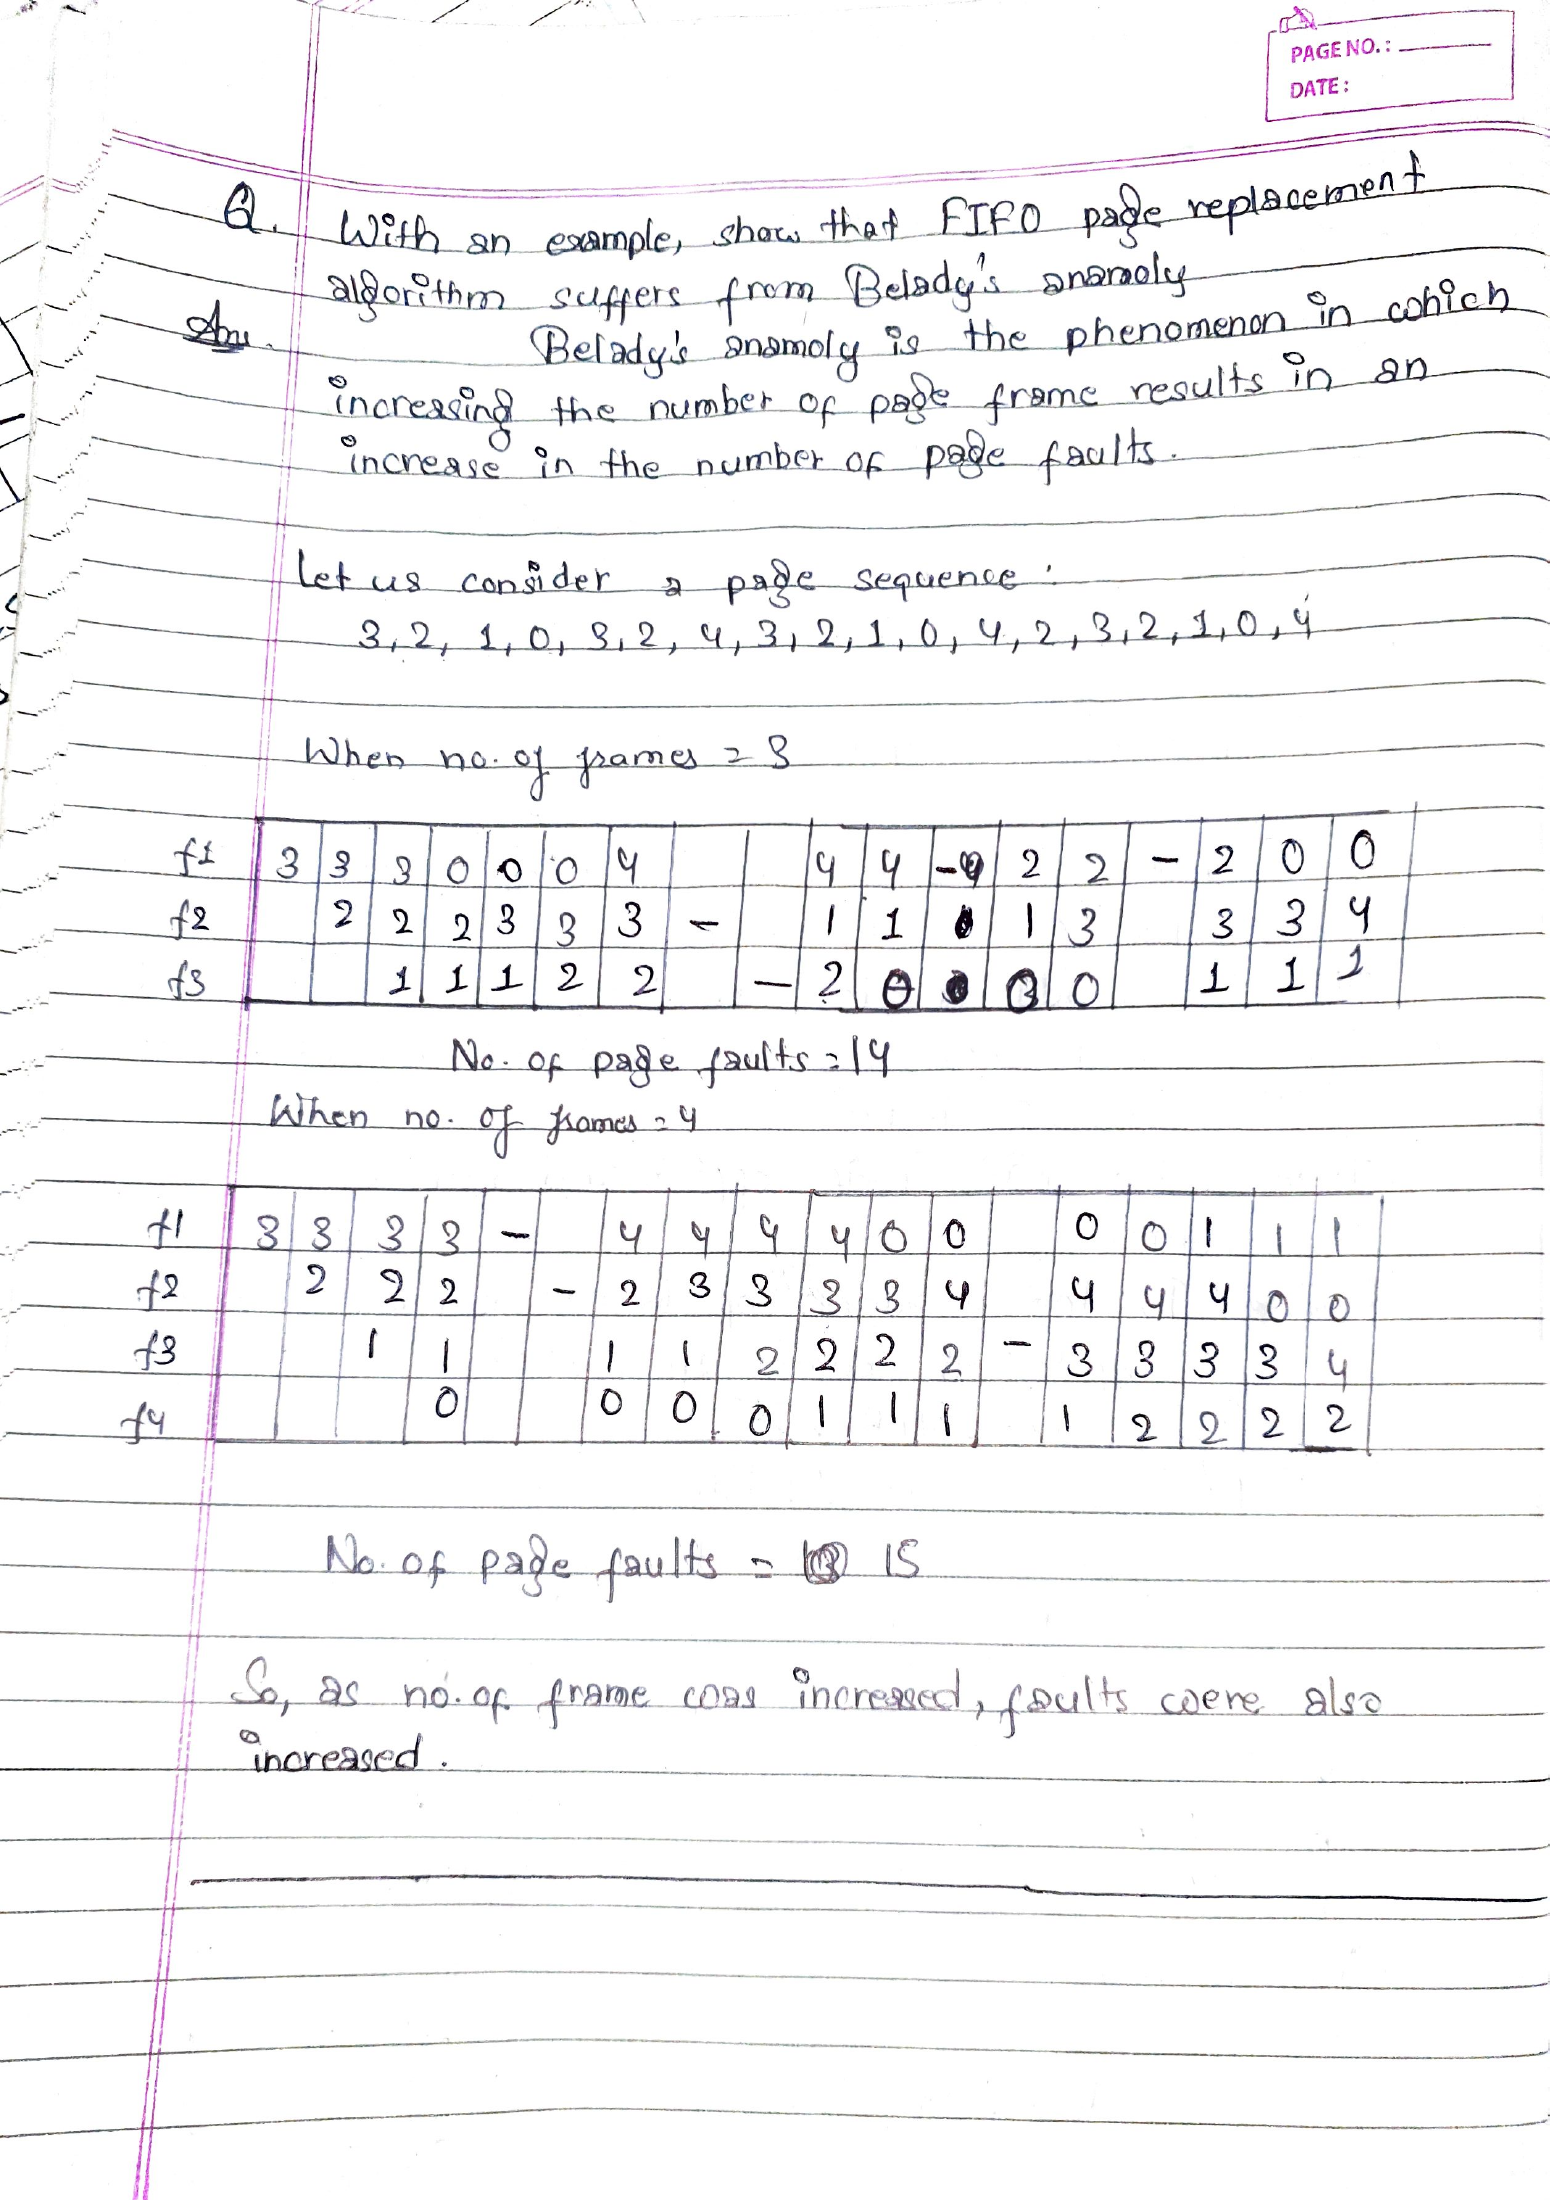 PAGE NO.:
DATE:
Q. With an example, show that FIFO page replacement
algorithm suffers from Belady's anamoly
Ans. Belady's anamoly is the phenomenon in which
increasing the number of page frame results in an
increase in the number of page faults.
Let us consider a page sequence :
3, 2, 1, 0, 3, 2, 4, 3, 2, 1, 0, 4, 2, 3, 2, 1, 0, 4
When no. of frames = 3
f1 3 3 3 0 0 0 4 4 4 - 2 2 - 2 0 0
f2 2 2 2 3 3 3 - 1 1 1 3 3 3 4
f3 1 1 1 2 2 - 2 0 0 0 1 1 1
No. of page faults = 14
When no. of frames = 4
f1 3 3 3 3 - 4 4 4 4 0 0 0 0 1 1 1
f2 2 2 2 - 2 3 3 3 3 4 4 4 4 0 0
f3 1 1 1 1 2 2 2 2 - 3 3 3 3 4
f4 0 0 0 0 1 1 1 1 2 2 2 2
No. of page faults = 15
So, as no. of frame was increased, faults were also
increased.